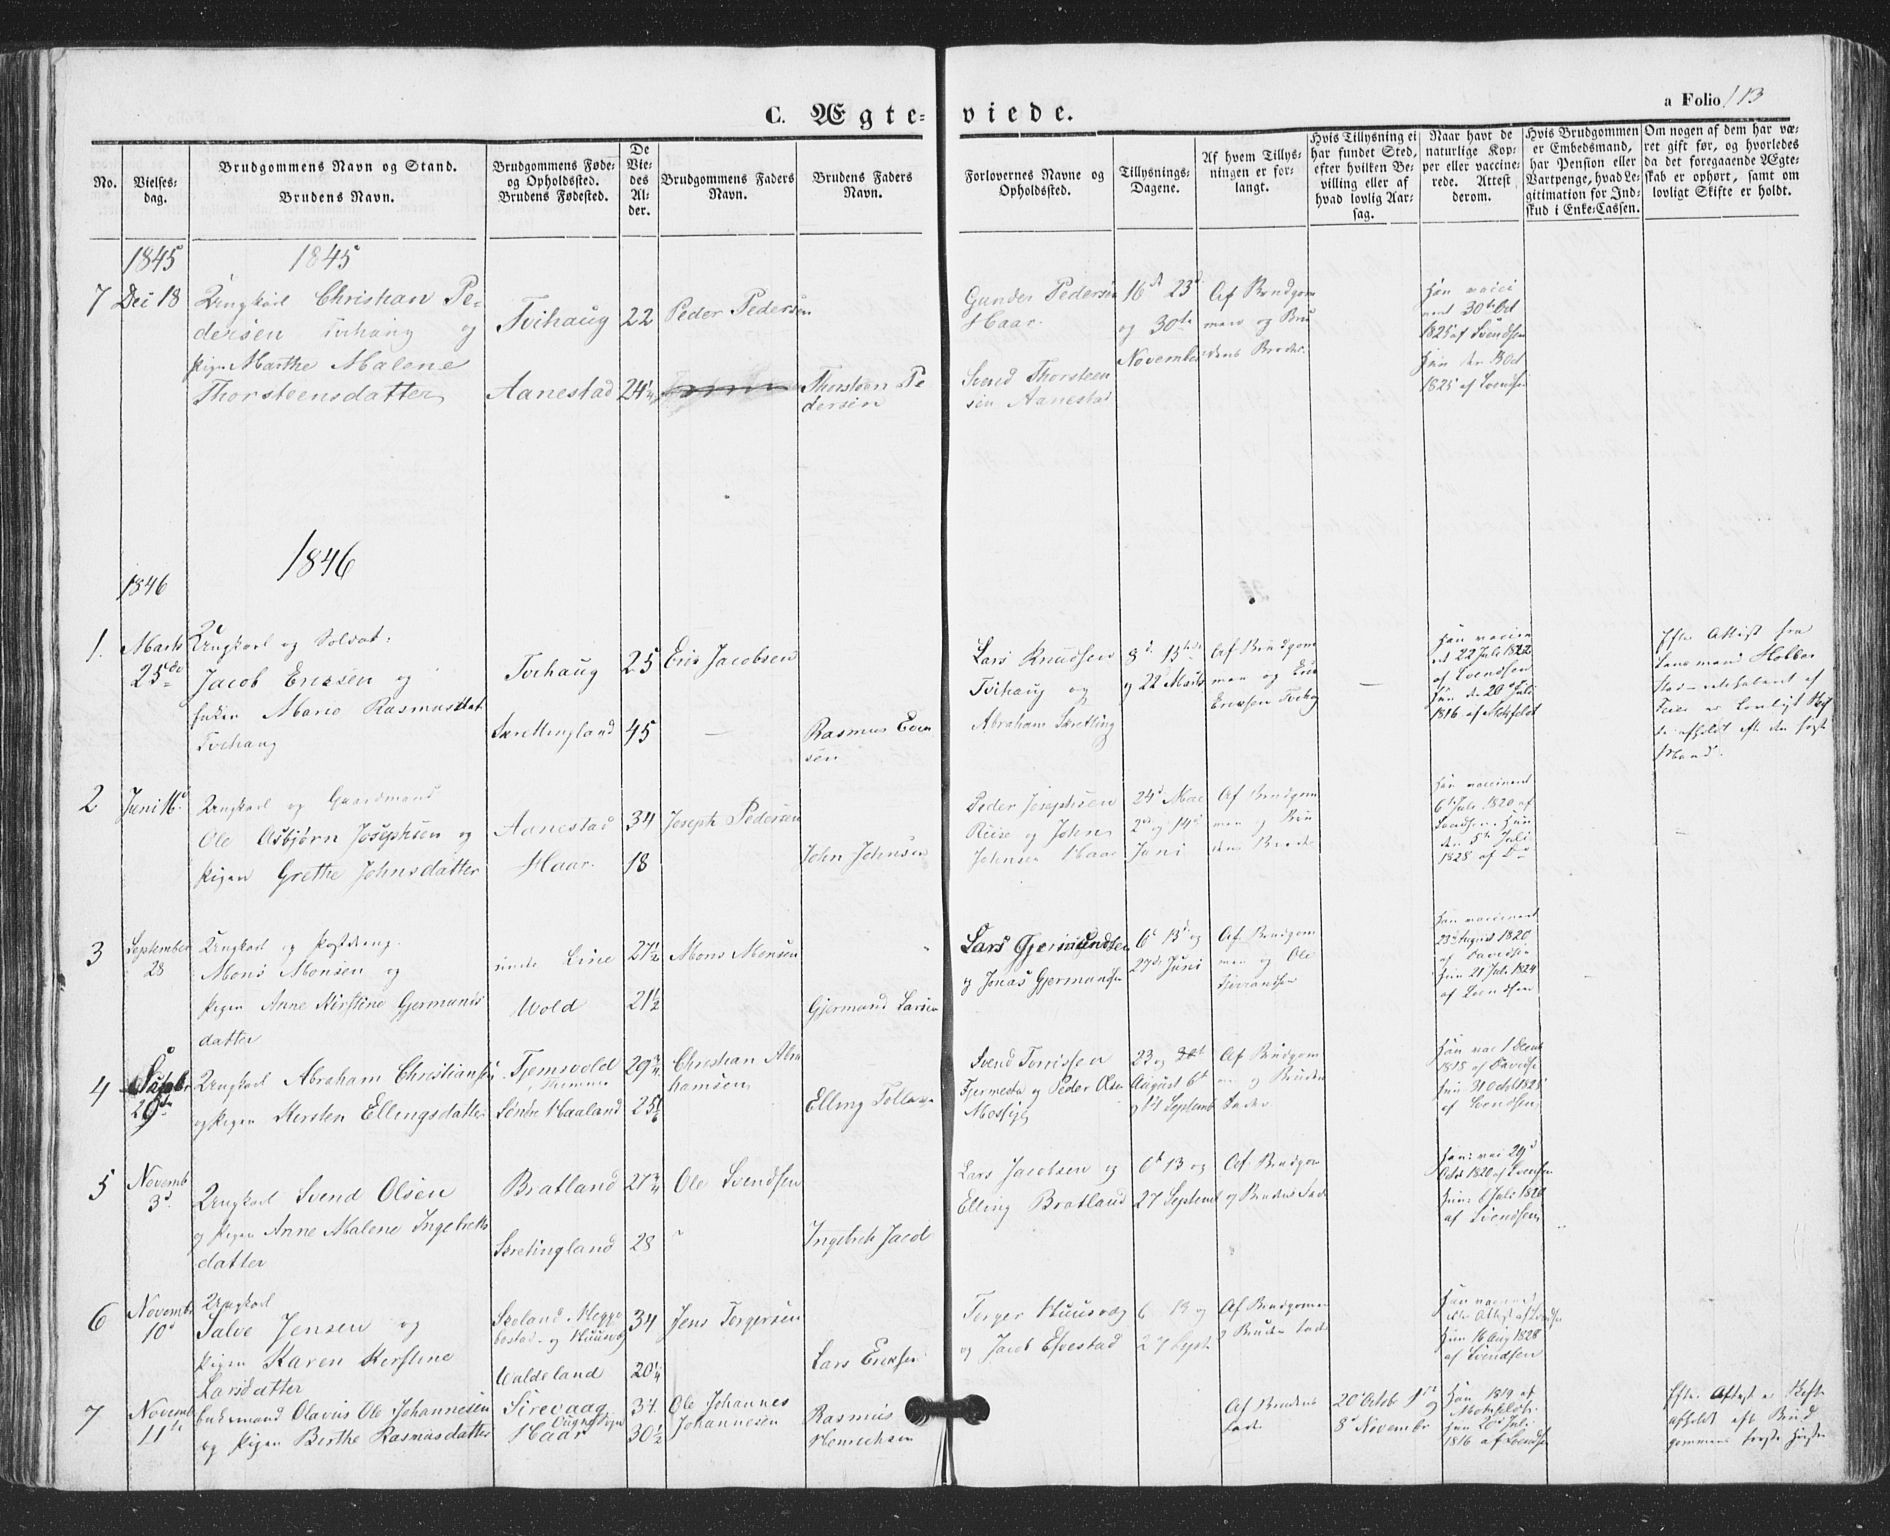 C. Ægte-viede.
a Folio 113
No.
Vielses-
dag.
Brudgommens Navn og Stand.
Brudens Navn.
Brudgommens Føde-
og Opholdsted.
Brudens Fødested.
De
Vie-
des
Al-
der.
Brudgommens Faders
Navn.
Brudens Faders
Navn.
Forlovernes Navne og
Opholdsted.
Tillysnings-
Dagene.
Af hvem Tillys-
ningen er for-
langt.
Hvis Tillysning ei
har fundet Sted,
efter hvilken Be-
villing eller af
hvad lovlig Aar-
sag.
Naar havt de
naturlige Kop-
per eller vaccine-
rede. Attest
derom.
Hvis Brudgommen
er Embedsmand,
har Pension eller
Vartpenge, hvad Le-
gitimation for Ind-
skud i Enke-Cassen.
Om nogen af dem har væ-
ret gift før, og hvorledes
da det foregaaende Ægte-
skab er ophørt, samt om
lovligt Skifte er holdt.
1845 1845
7 Dec 18
Ungkarl Christian Pe-
dersen Tvihaug og
Pigen Marthe Malene
Thorsteensdatter
Tvihaug 22 Peder Pedersen
Aanestad 24¼
Thorsteen Pe
dersen
Gunder Pedersen
Haar
Svend Thorsteen
sen Aanestad
16d 23d
og 30te
November
Af Brudgom
men og Bru
dens Broder
Han vacci
neret 30te Oct
1825 af Svendsen
Hun den 3 Oct
1825 af Svendsen
1846
1846
1. Marts
25de
Ungkarl og Soldat:
Jacob Ericsen og
Enken Maria Rasmusdat
Tvihaug
Tvihaug 25 Eric Jacobsen
Skrettingland 45 —
Rasmus Even
sen
Lars Knudsen
Tvihaug og
Abraham Skretting
8d 15de
og 22 Marts
Af Brudgom
men og
Ericsen Tvihaug
—
Han vaccine
ret 22 Juli 1822
af Svendsen
Hun den 20d Juli
1816 af
Efter Attest fra
Lensmand
er lovligt Skif
te afholdt efter den første
Mand.
2 Juni 16d
Ungkarl og Gaardmand
Ole Asbjørn Josephsen og
Pigen Grethe Johnsdatter
Aanestad 34 Joseph Pedersen
Haar 18
John Johnsen
Peder Josephsen
Riise og John
Johnsen Haar
24d Mai
2de og 14d
Juni
Af Brudgom
men og Bru
dens Broder
Han vaccineret
6d Juli 1820 af
Svendsen. Hun
den 5te Juli
1828 af Do
3 September
28
Ungkarl og Postdreng
Mons Monsen og
Pigen Anne Kirstine Gjermunds
datter
Line 27½ Mons Monsen
Wold 21½
Gjermund Larsen
Lars Gjermundsen
og Jonas Gjermundsen
6d 13d og
27d Juni
Af Brudgom
men og Ole
Han vaccineret
23d August 1820
af Davidsen
Hun 21 Juli 1824
af Svendsen
4
29de
Ungkarl Abraham Christiansen
og Pigen Kersten Ellingsdatter
Tjemsvold 29¾ Christian Abra
hamsen
Søndre Haaland
Elling Tollevs
Svend Torrissen
Tjermestad og Peder Olsen
Mossige
23 og
August 6d
og 14 Septemb
Af Brudgom
og Bruden
Fader
Han vac 1 Decmb
1818 af Davidsen
Hun 31 Octob 1825
af Svendsen
5 Novemb
3d
Ungkarl Svend Olsen
og Pigen Anne Malene Ingebrets
datter
Bratland 27¾ Ole Svendsen
Skretingland 28
Ingebreth Jacob
Lars Jacobsen og
Elling Bratland
6d 13 og
27 Septemb
Af Brudgom
og Brudens Fader
Han vac 29d
Octob 1820 af Svendsen
Hun Juli 1820
af Svendsen
6 Novemb
10d
Ungkarl
Salve Jensen og
Pigen Karen Kerstine
Larsdatter
34 Jens Torgersen
Waldeland 20¼
Lars Ericsen
Torger Huusvæg
og Jacob Efvestad
6 13 og
27 Sept
Af Brudgommen
og Brudens Fader
Hun 16 Aug 1828
af Svendsen
7 Novemb
11te
Enkemand Olavus Ole Johannesen
og Pigen Berthe Rasmusdatter
Sirevaag 37 Ole Johannes
Haar 30½ Johannesen
Rasmus
Henrichsen
Af Brudens
Fader
8d November
Han 1819 af
Hun 20d Juli
1816 af Svendsen
Efter Attest er Skifte
afholdt efter Brud
gommens første Hustru